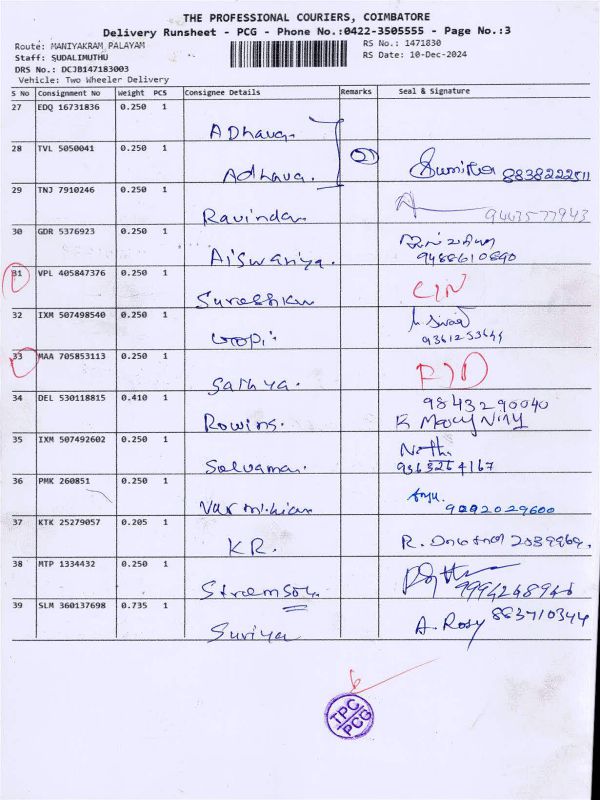 THE PROFESSIONAL COURIERS, COIMBATORE
Delivery Runsheet - PCG - Phone No.:0422-3505555 - Page No.:3
Route: MANIYAKRAM PALAYAM
RS No.: 1471830
Staff: SUDALIMUTHU
RS Date: 10-Dec-2024
DRS No.: DCJB147183003
Vehicle: Two Wheeler Delivery
S No Consignment No Weight PCS Consignee Details Remarks Seal & Signature
27 EDQ 16731836 0.250 1
ADhava.
28 TVL 5050041 0.250 1
Adhava. 2 Sumitha 8838222511
29 TNJ 7910246 0.250 1
Ravindar 9443577943
30 GDR 5376923 0.250 1
Aiswariya. 9488610890
31 VPL 405847376 0.250 1
Sureshkum C/N
32 IXM 507498540 0.250 1
Gopi. 9361253644
33 MAA 705853113 0.250 1
Sathya.
34 DEL 530118815 0.410 1
9843290040
Rowins.
35 IXM 507492602 0.250 1
Selvamani 9363264167
36 PMK 260851 0.250 1
Anju.
9092029600
37 KTK 25279057 0.205 1
KR. R. 2039969.
38 MTP 1334432 0.250 1
9994248946
39 SLM 360137698 0.735 1
Suriya A. Rosy 883710344
6
TPC
PCG